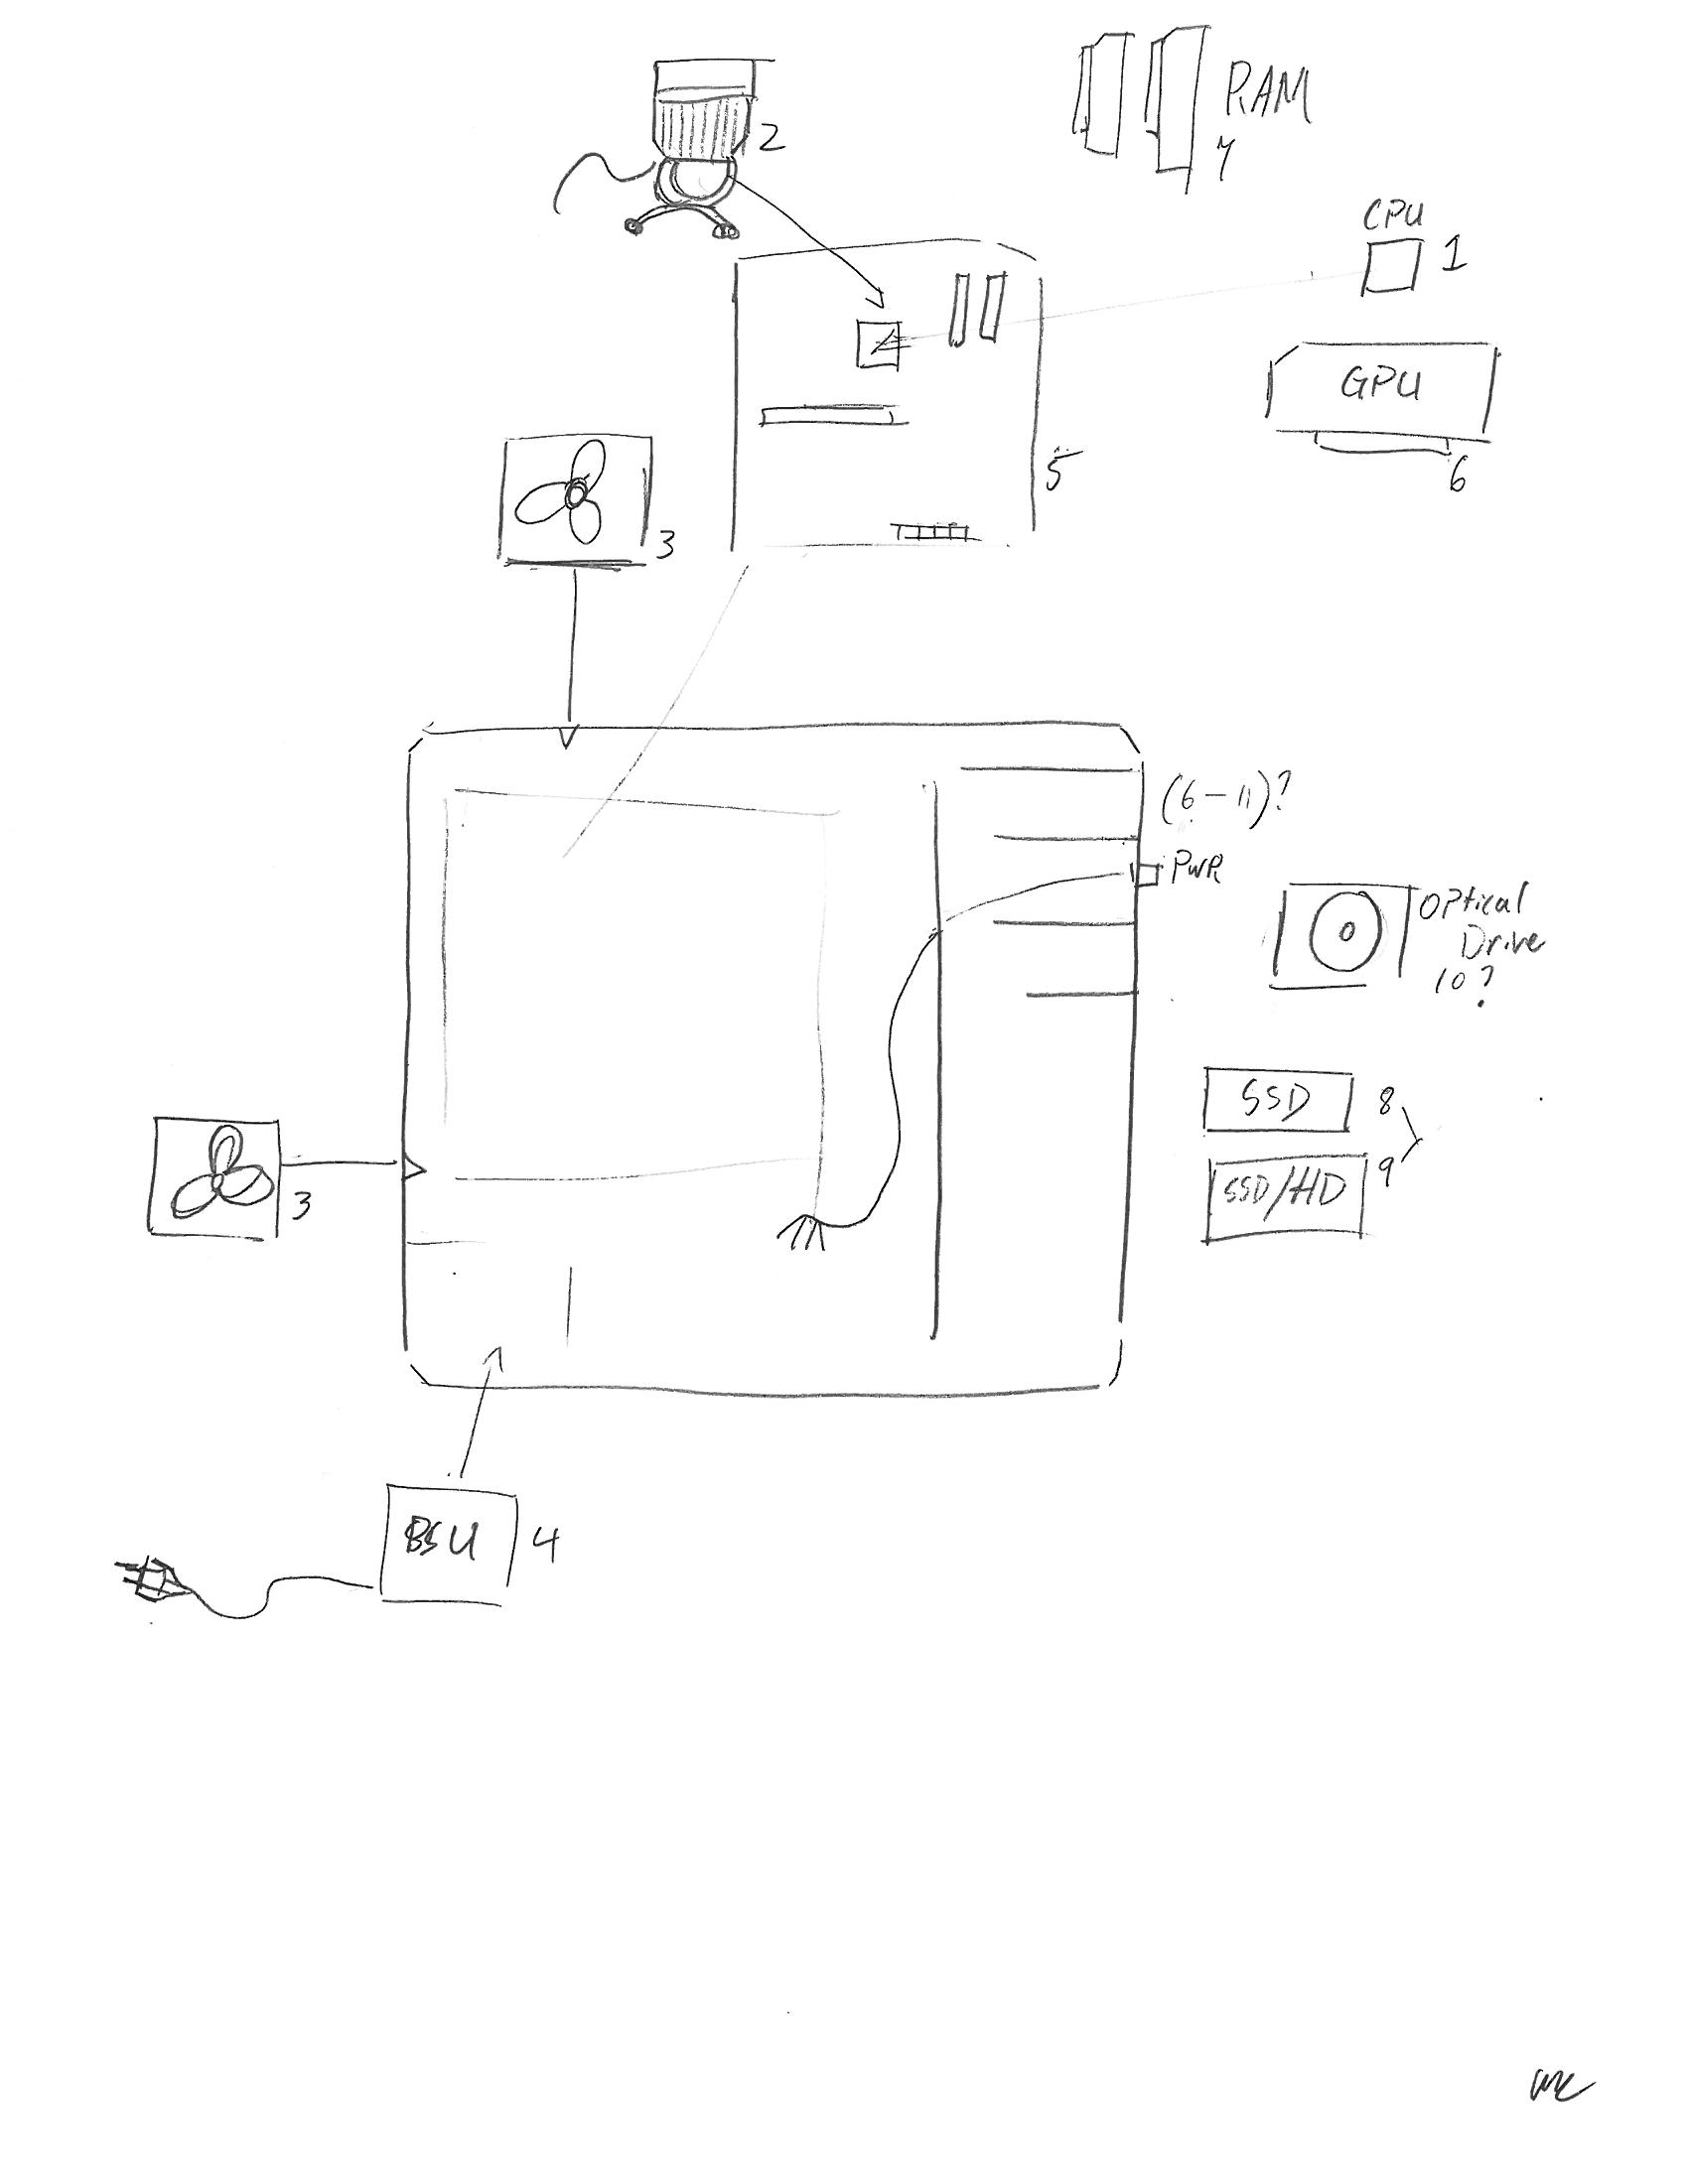 2
RAM
7
CPU
1
GPU
6
5
3
(6-11)?
PWR
Optical
Drive
10?
SSD
8
SSD/HD
9
3
BSU
4